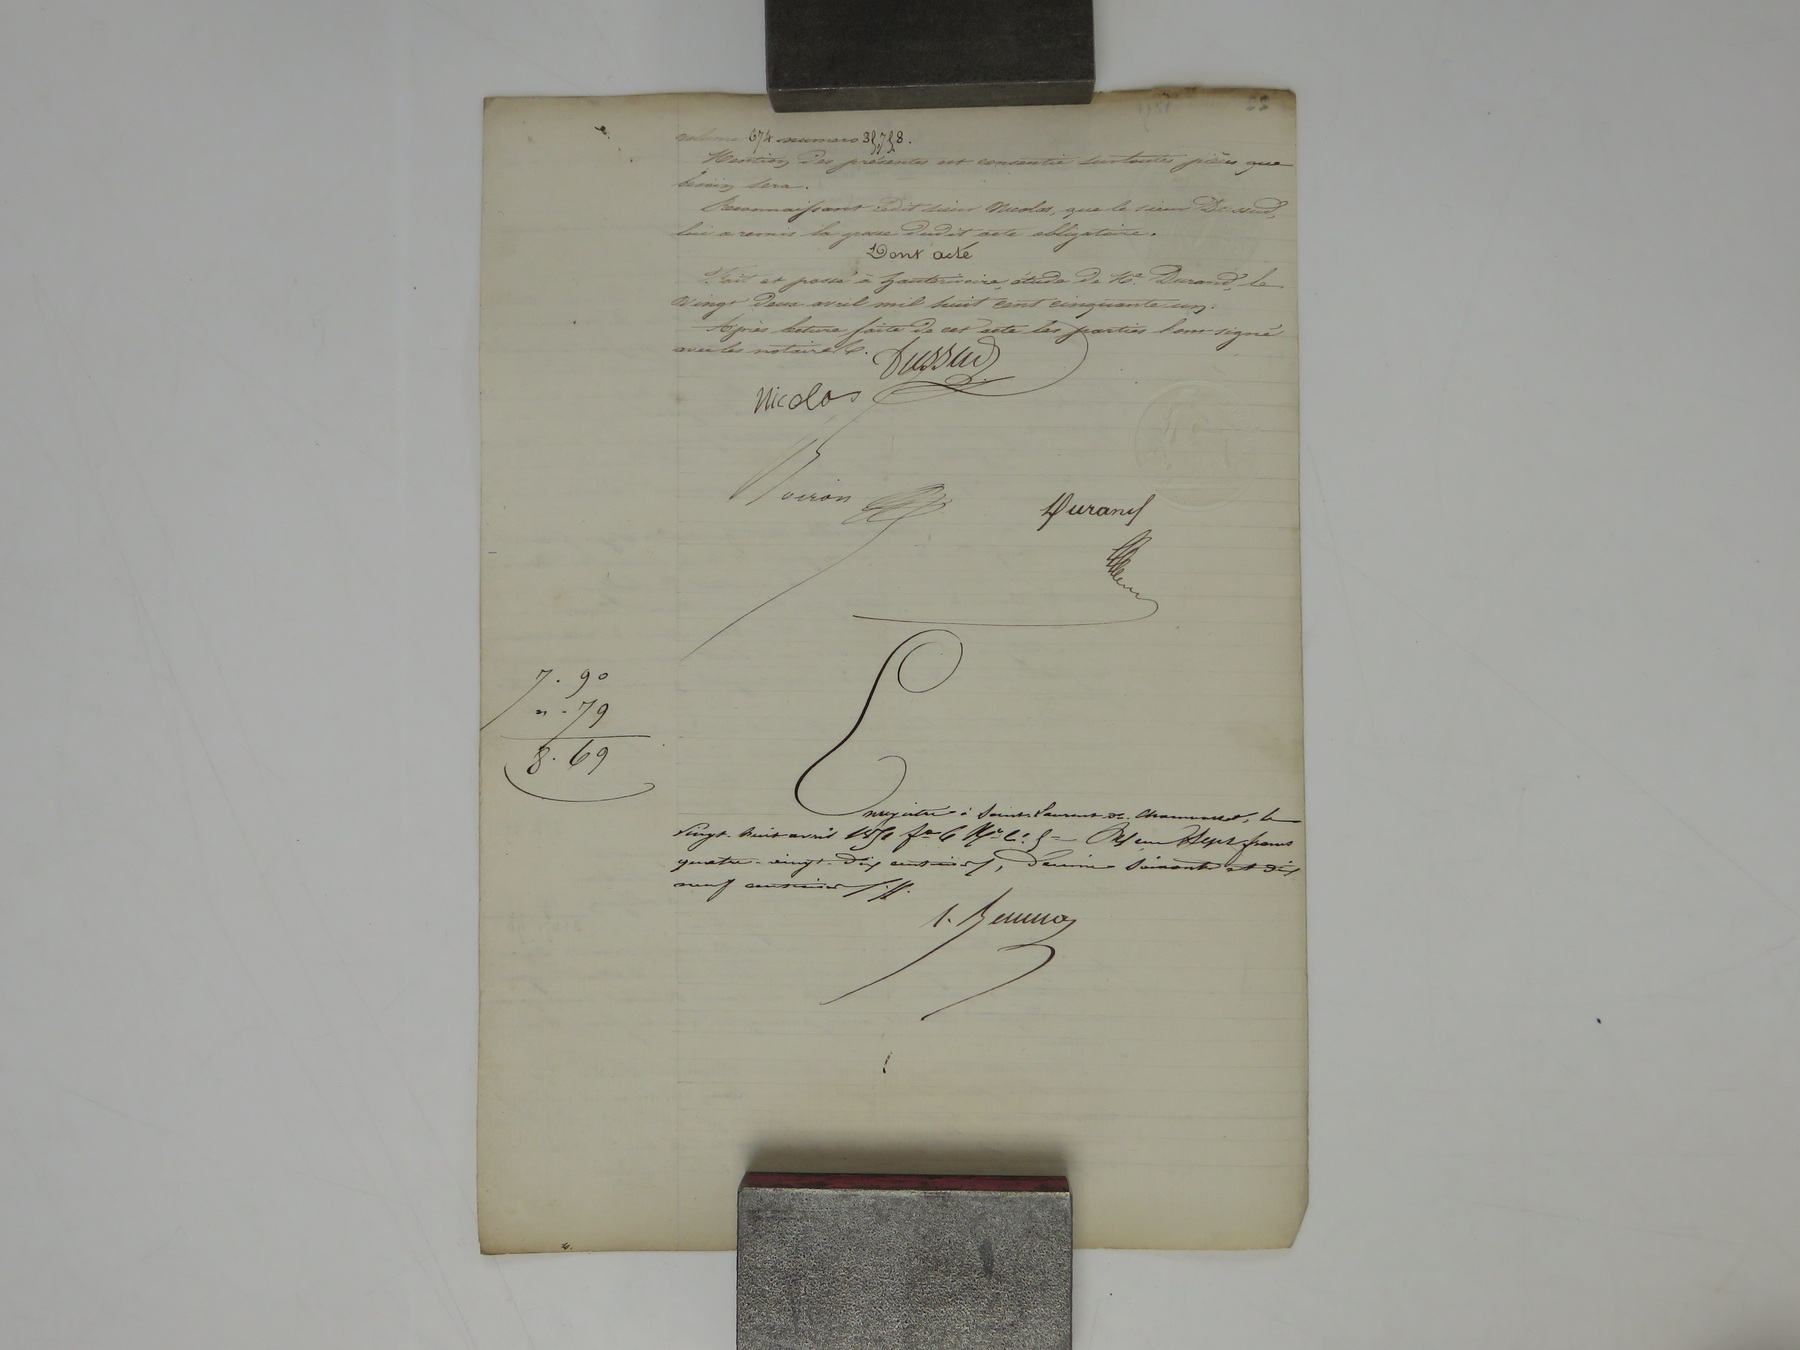 volume 674 numero
Mention des présentes est consentie sur toutes pièces que
besoin sera.
Reconnaissant ledit sieur Nicolas, que le sieur Dussud,
lui a remis la grosse dudit acte obligatoire.
Dont acte
Fait et passé à hauterivoire, étude de Me Durand, le
vingt deux avril mil huit cent cinquante un.
Après lecture faite de cet acte les parties l'ont signé
avec les notaires.
Dussud
Nicolas
Voiron
Durand
7. 90
" . 79
8. 69
Enregistré à Saint Laurent de Chamousset, le
vingt huit avril 1851 fo 6 Ro Co 5 = Reçu Sept francs
quatre-vingt-dix centimes, décime Soixante et dix
neuf centimes